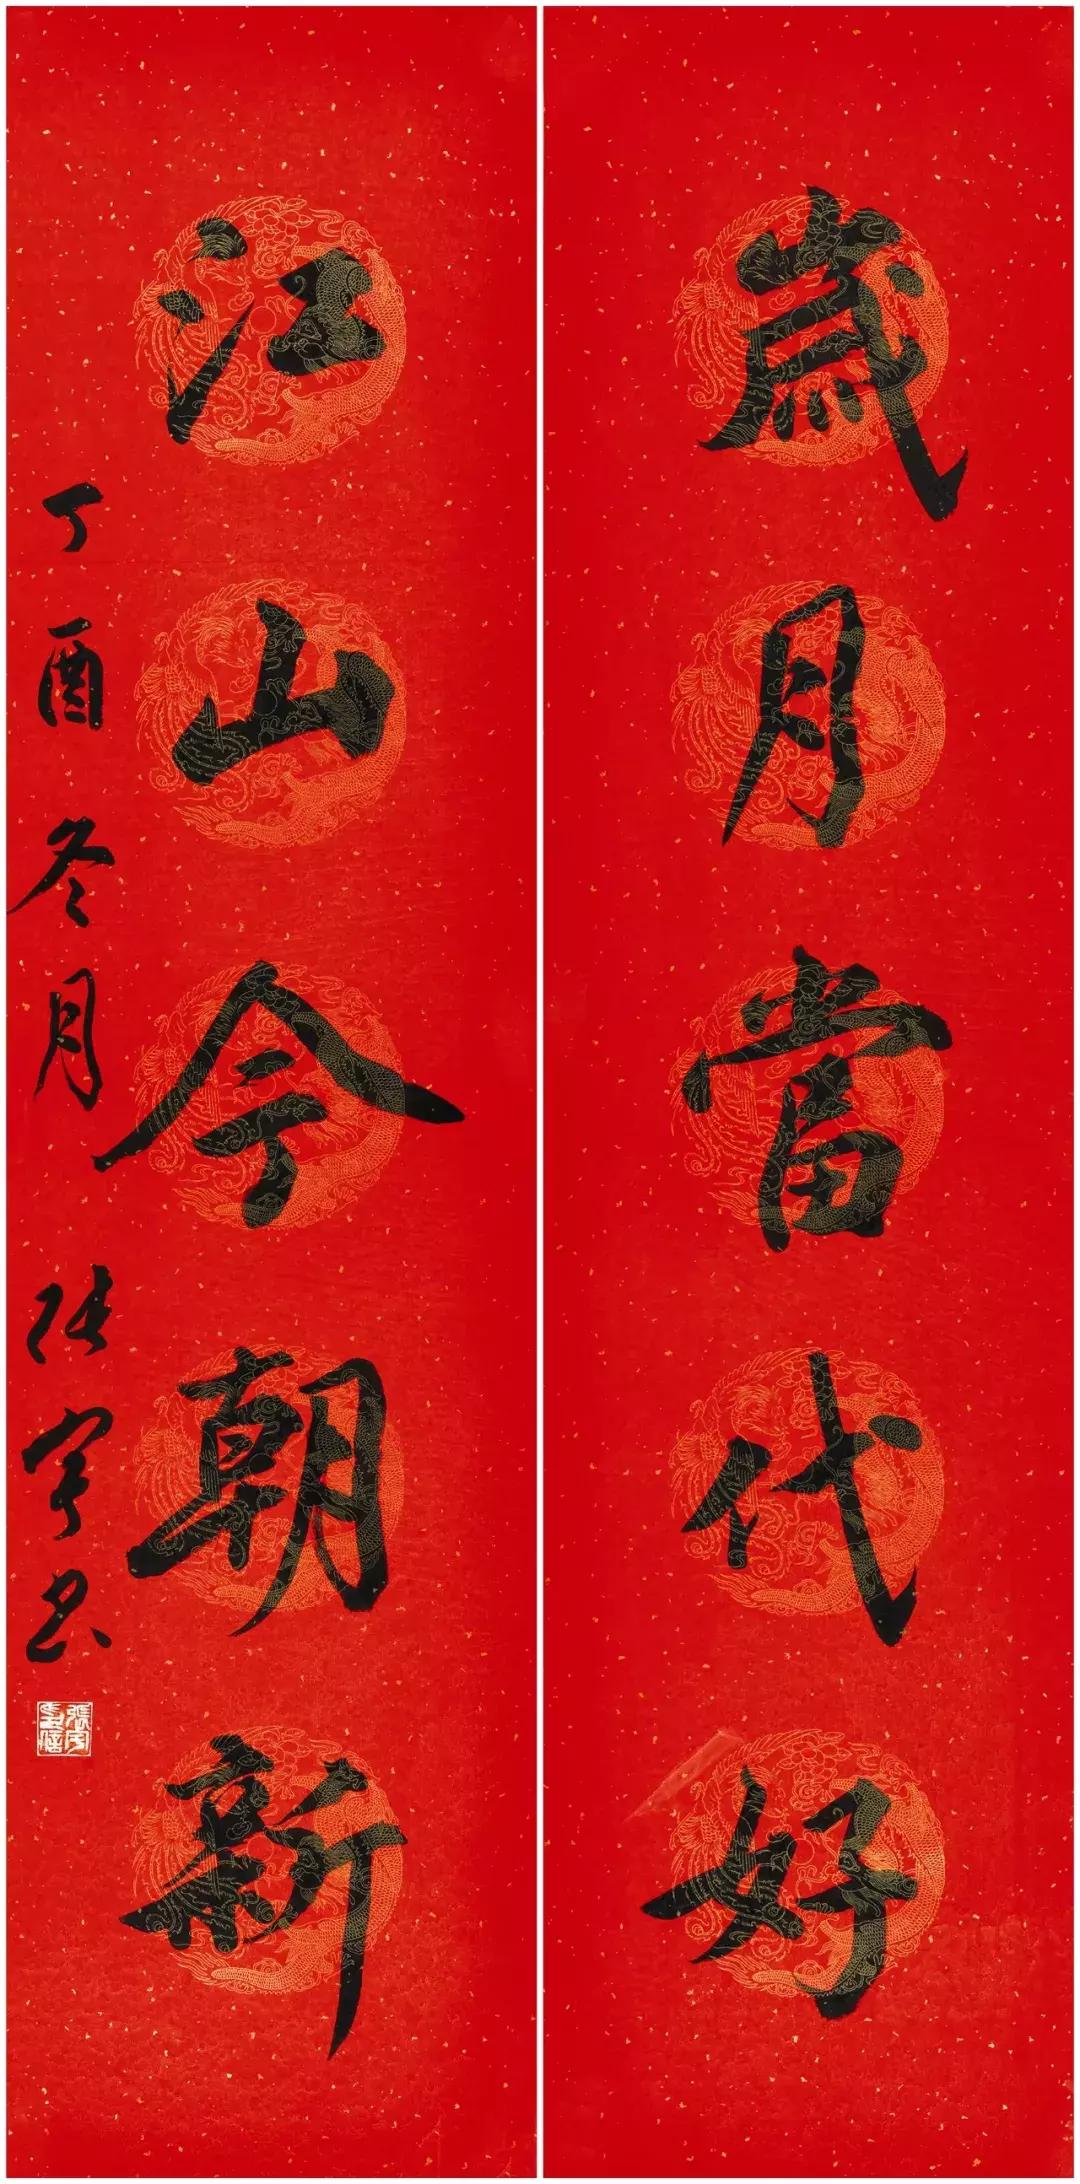 歲月當代好
江山今朝新
丁酉冬月 張宇書
張宇